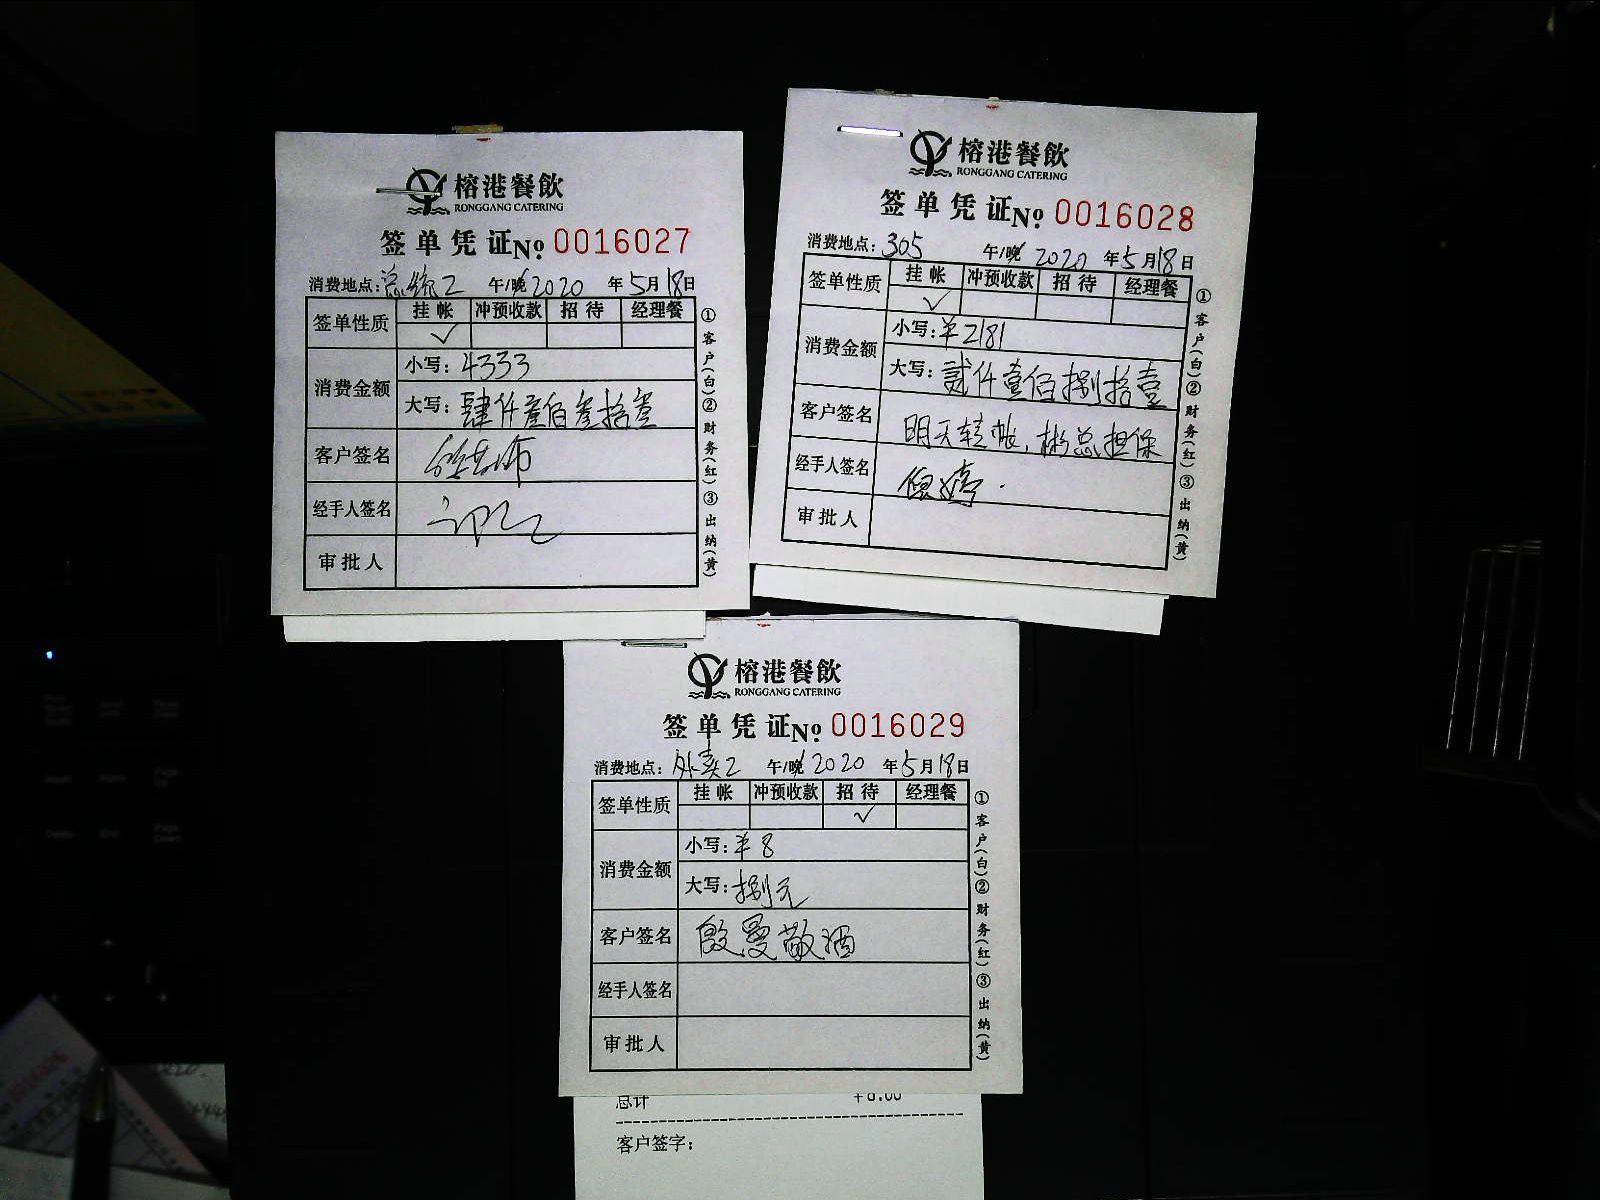 榕港餐飲
RONGGANG CATERING
签单凭证No. 0016027
消费地点：总统2 午/晚 2020 年5月18日
签单性质 挂帐 冲预收款 招待 经理餐
✓
消费金额 小写：4333
大写：肆仟叁佰叁拾叁
客户签名
经手人签名
审批人
①客户(白)②财务(红)③出纳(黄)
榕港餐飲
RONGGANG CATERING
签单凭证No. 0016028
消费地点：305 午/晚 2020 年5月18日
签单性质 挂帐 冲预收款 招待 经理餐
✓
消费金额 小写：¥2181
大写：贰仟壹佰捌拾壹
客户签名 明天转帐，彬总担保
经手人签名
审批人
①客户(白)②财务(红)③出纳(黄)
榕港餐飲
RONGGANG CATERING
签单凭证No. 0016029
消费地点：外卖2 午/晚 2020 年5月18日
签单性质 挂帐 冲预收款 招待 经理餐
✓
消费金额 小写：¥8
大写：捌元
客户签名 殷曼敬酒
经手人签名
审批人
①客户(白)②财务(红)③出纳(黄)
总计
客户签字：